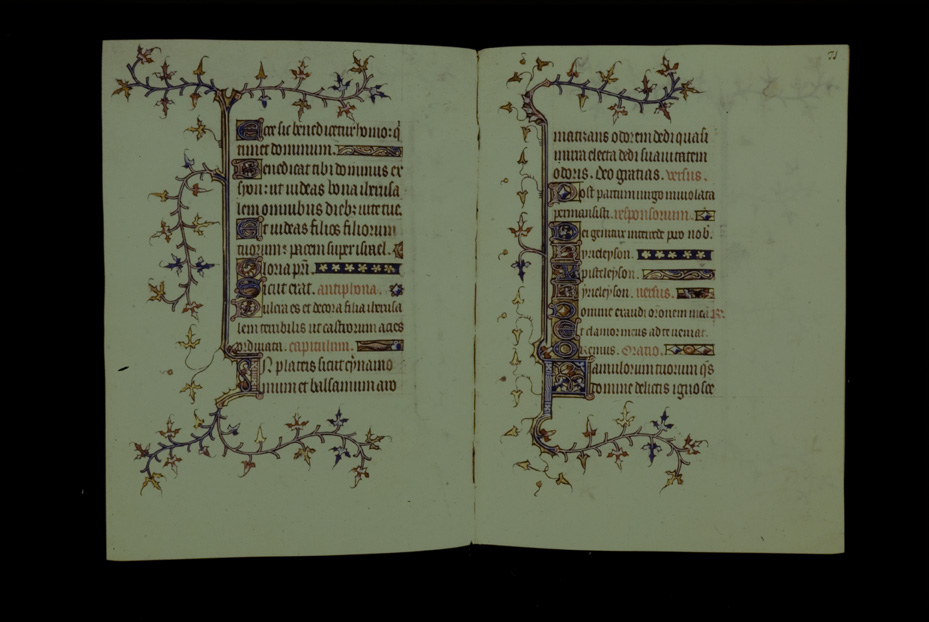 Ecce sic benedicetur homo: q̄
timet dominum.
Benedicat tibi dominus ex
syon: ut uideas bona iherusa
lem omnibus diebȝ uite tue.
Et uideas filios filiorum
tuorum: pacem super israel.
Gloria pr̄i.
Sicut erat. antiphona.
Pulcra es et decora filia iherusa
lem terribilis ut castrorum acies
ordinata. capitulum.
In plateis sicut cynamo
mum et balsamum aro
71
matizans odorem dedi quasi
mirra electa dedi suauitatem
odoris. Deo gratias. versus.
Post partum uirgo inuiolata
permansisti. responsorium.
Dei genitrix intercede pro nob̄.
Kyrieleyson.
Xpisteleyson.
Kyrieleyson. uersus.
Domine exaudi or̄onem meā. R̄.
Et clamor meus ad te ueniat.
Oremus. Oratio.
Famulorum tuorum q̄s
domine delictis ignosce